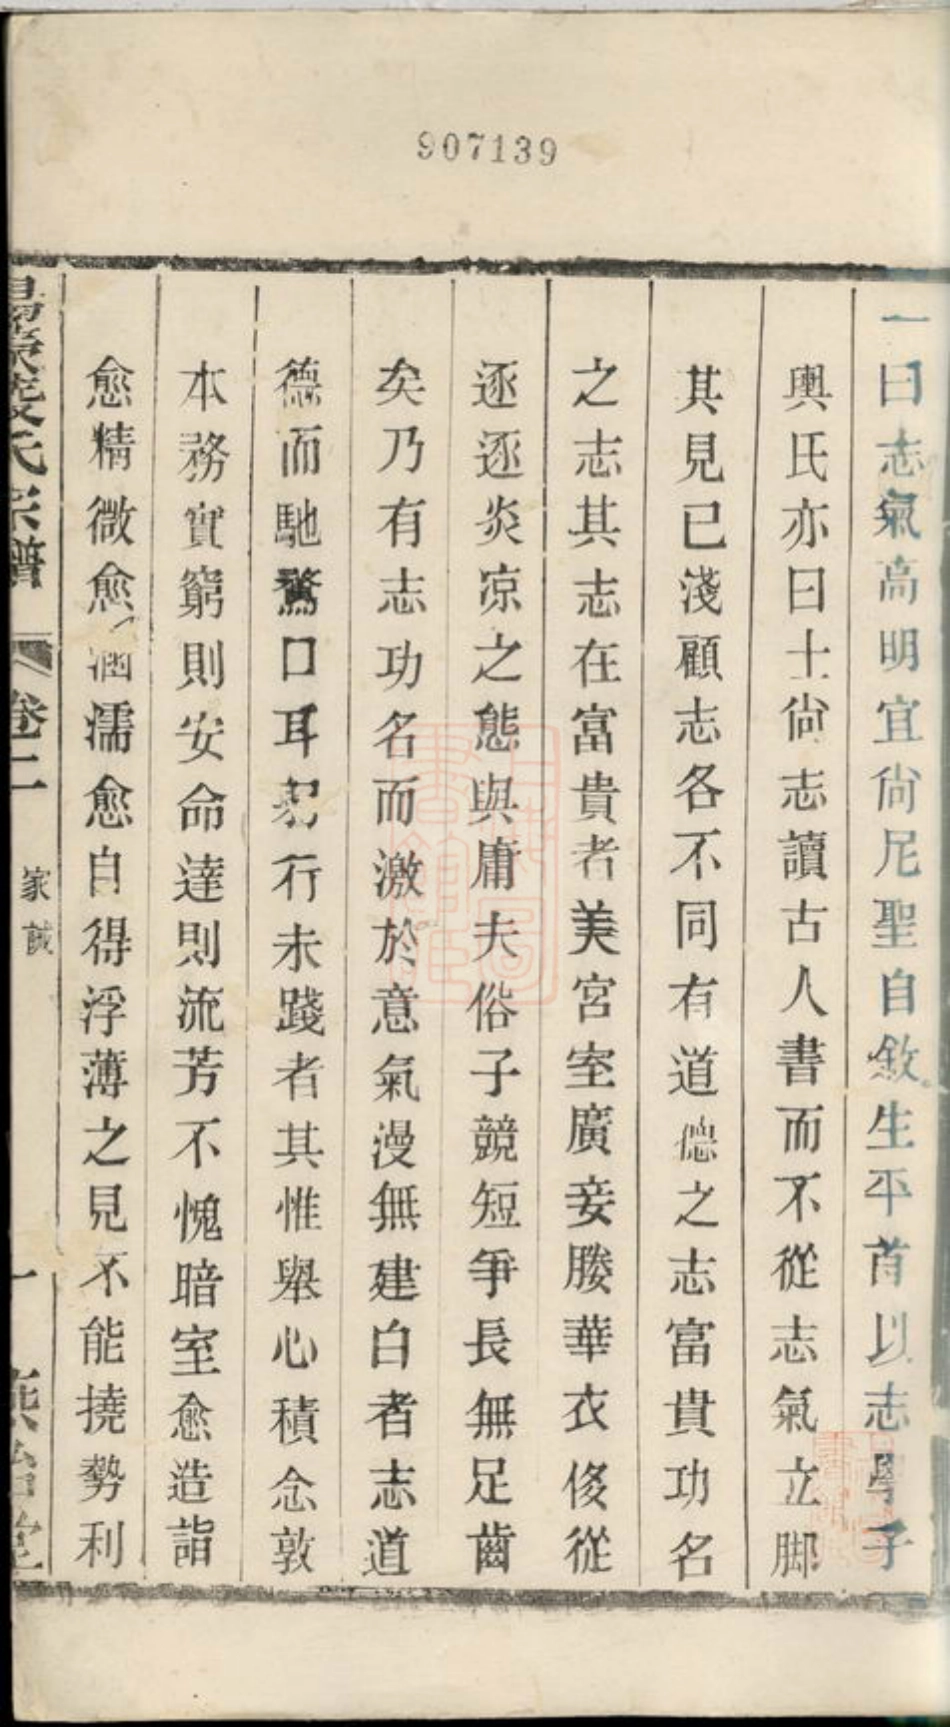 907139
一曰志氣高明宜尙尼聖自敘生平首以志學子
輿氏亦曰士尙志讀古人書而不從志氣立脚
其見已淺顧志各不同有道德之志富貴功名
之志其志在富貴者美宮室廣妾媵華衣後從
逐逐炎凉之態與庸夫俗子競短爭長無足齒
矣乃有志功名而激於意氣漫無建白者志道
德而馳騖口耳躬行未踐者其惟舉心積念敦
本務實窮則安命達則流芳不愧暗室愈造詣
愈精微愈涵濡愈自得浮薄之見不能撓勢利
凌氏宗譜 卷二 家誡 一